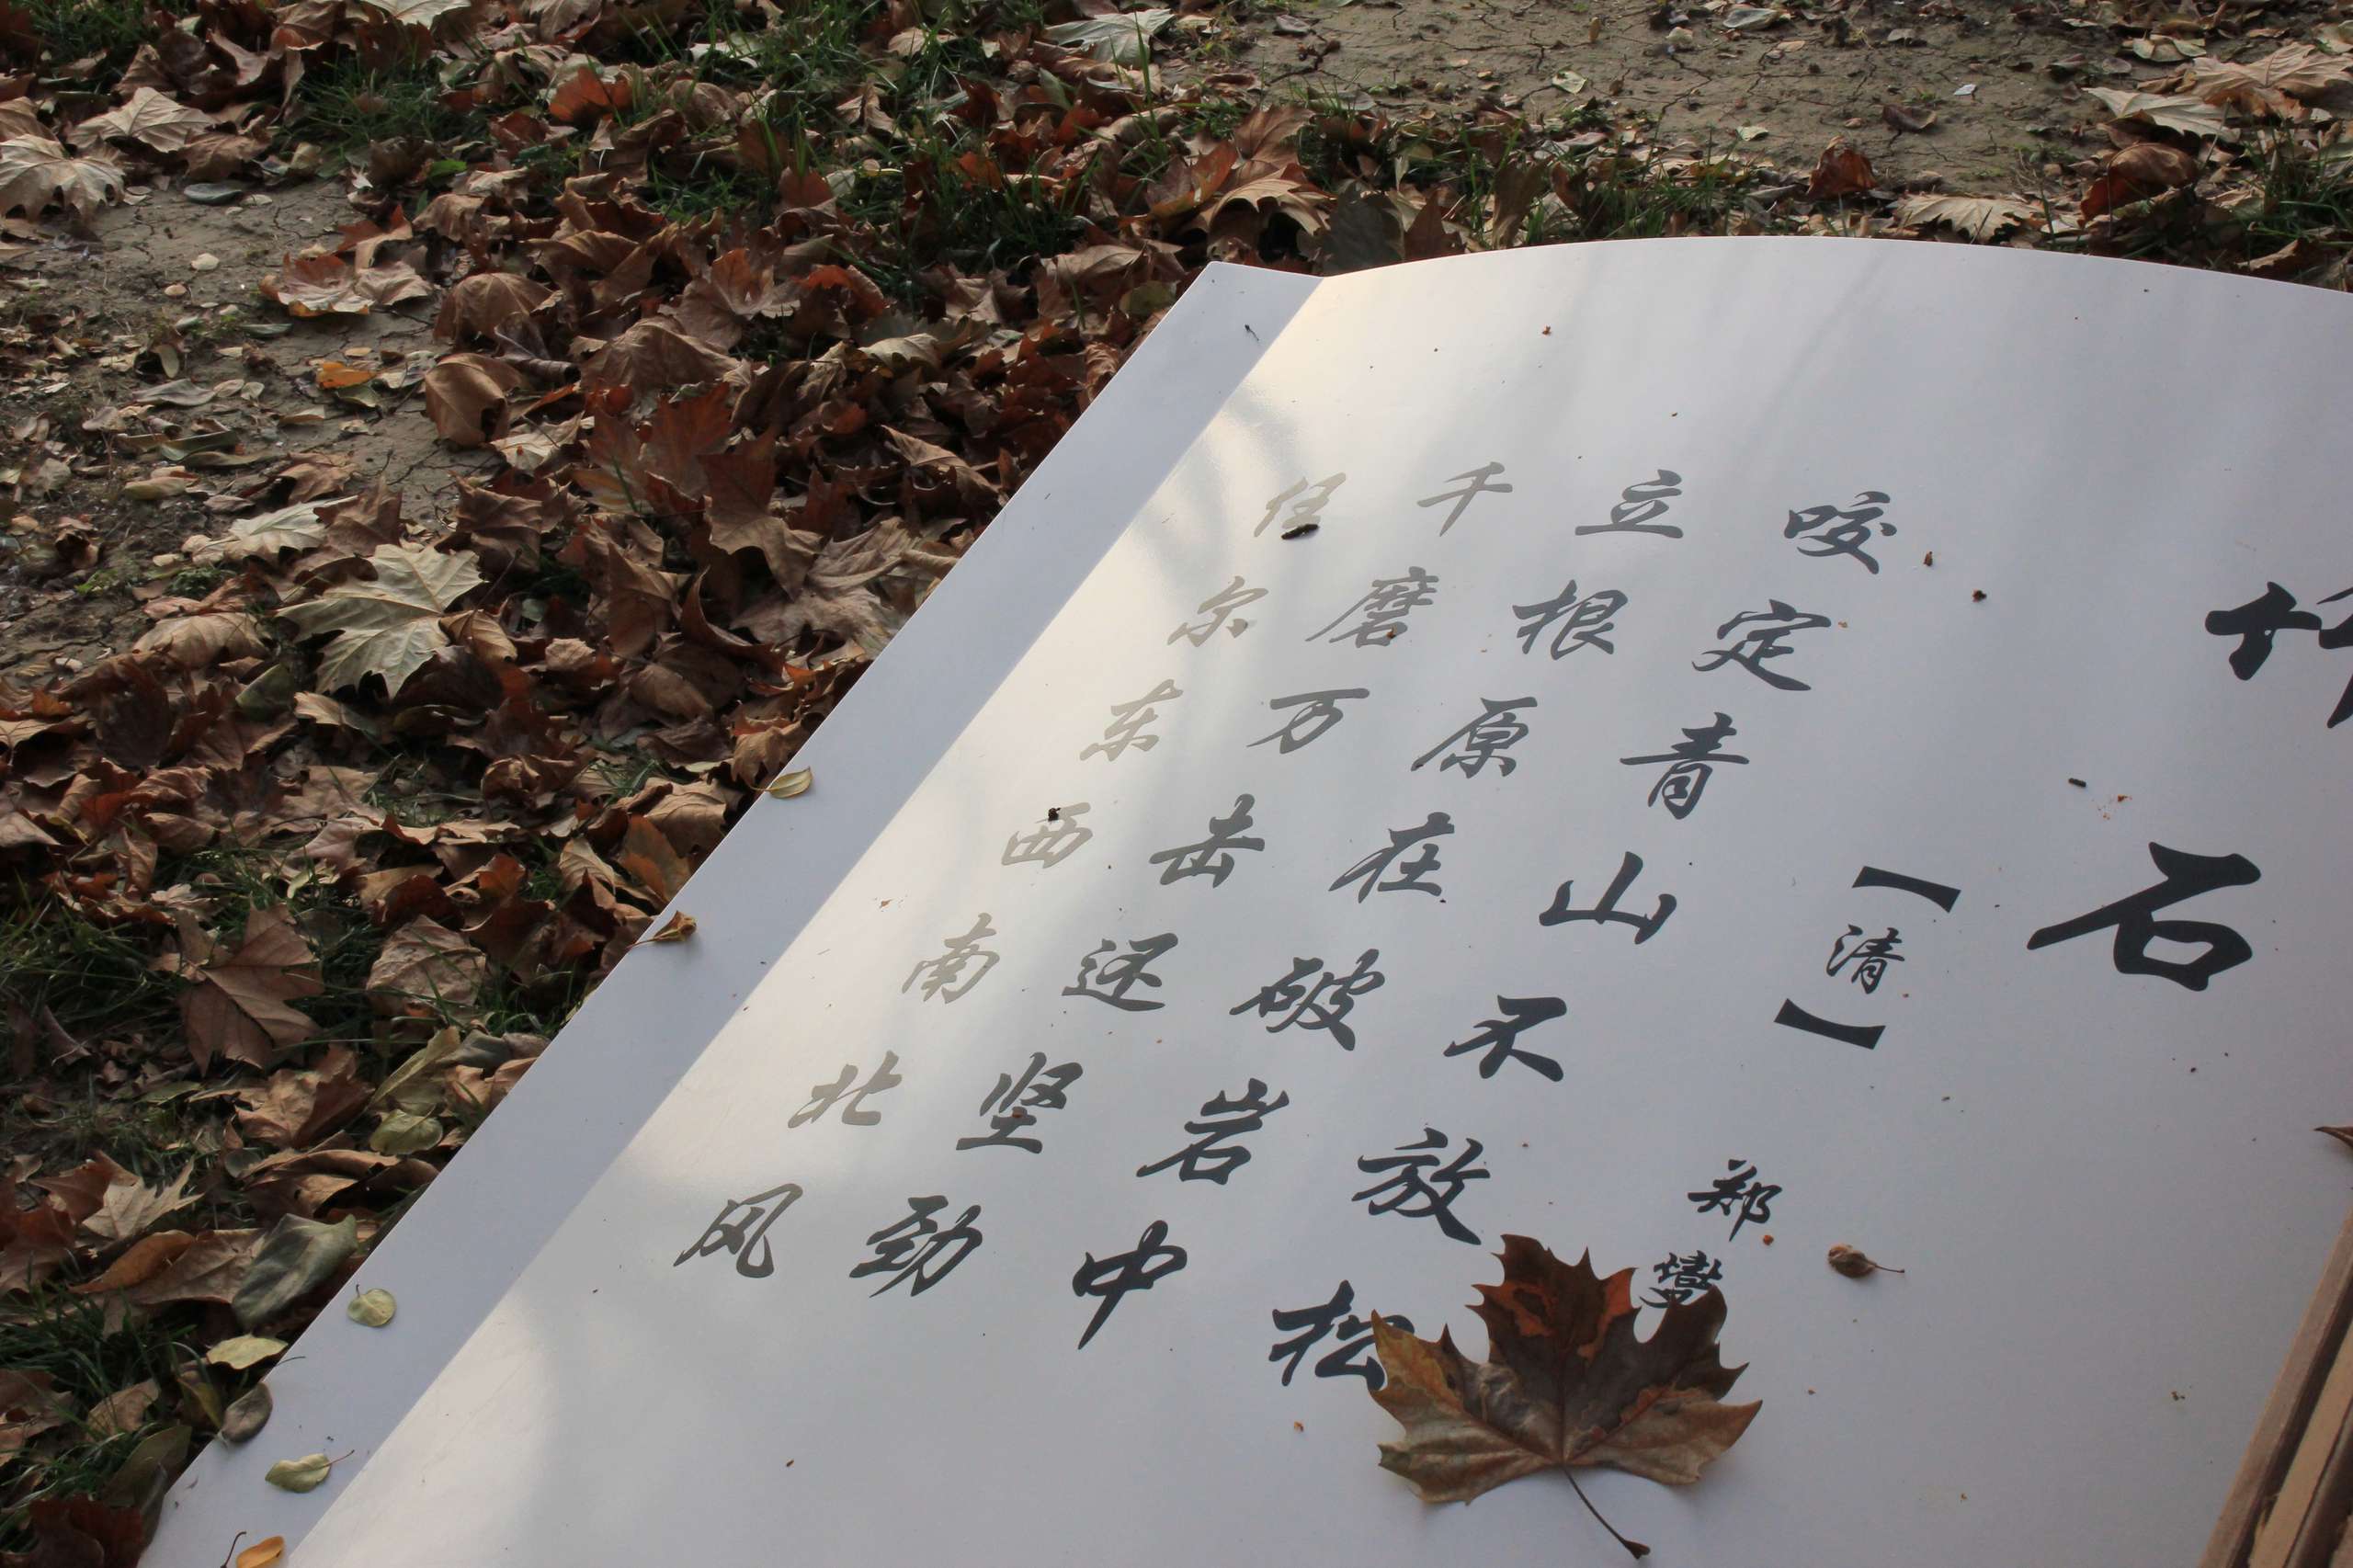 竹石
【清】郑燮
咬定青山不放松
立根原在破岩中
千磨万击还坚劲
任尔东西南北风